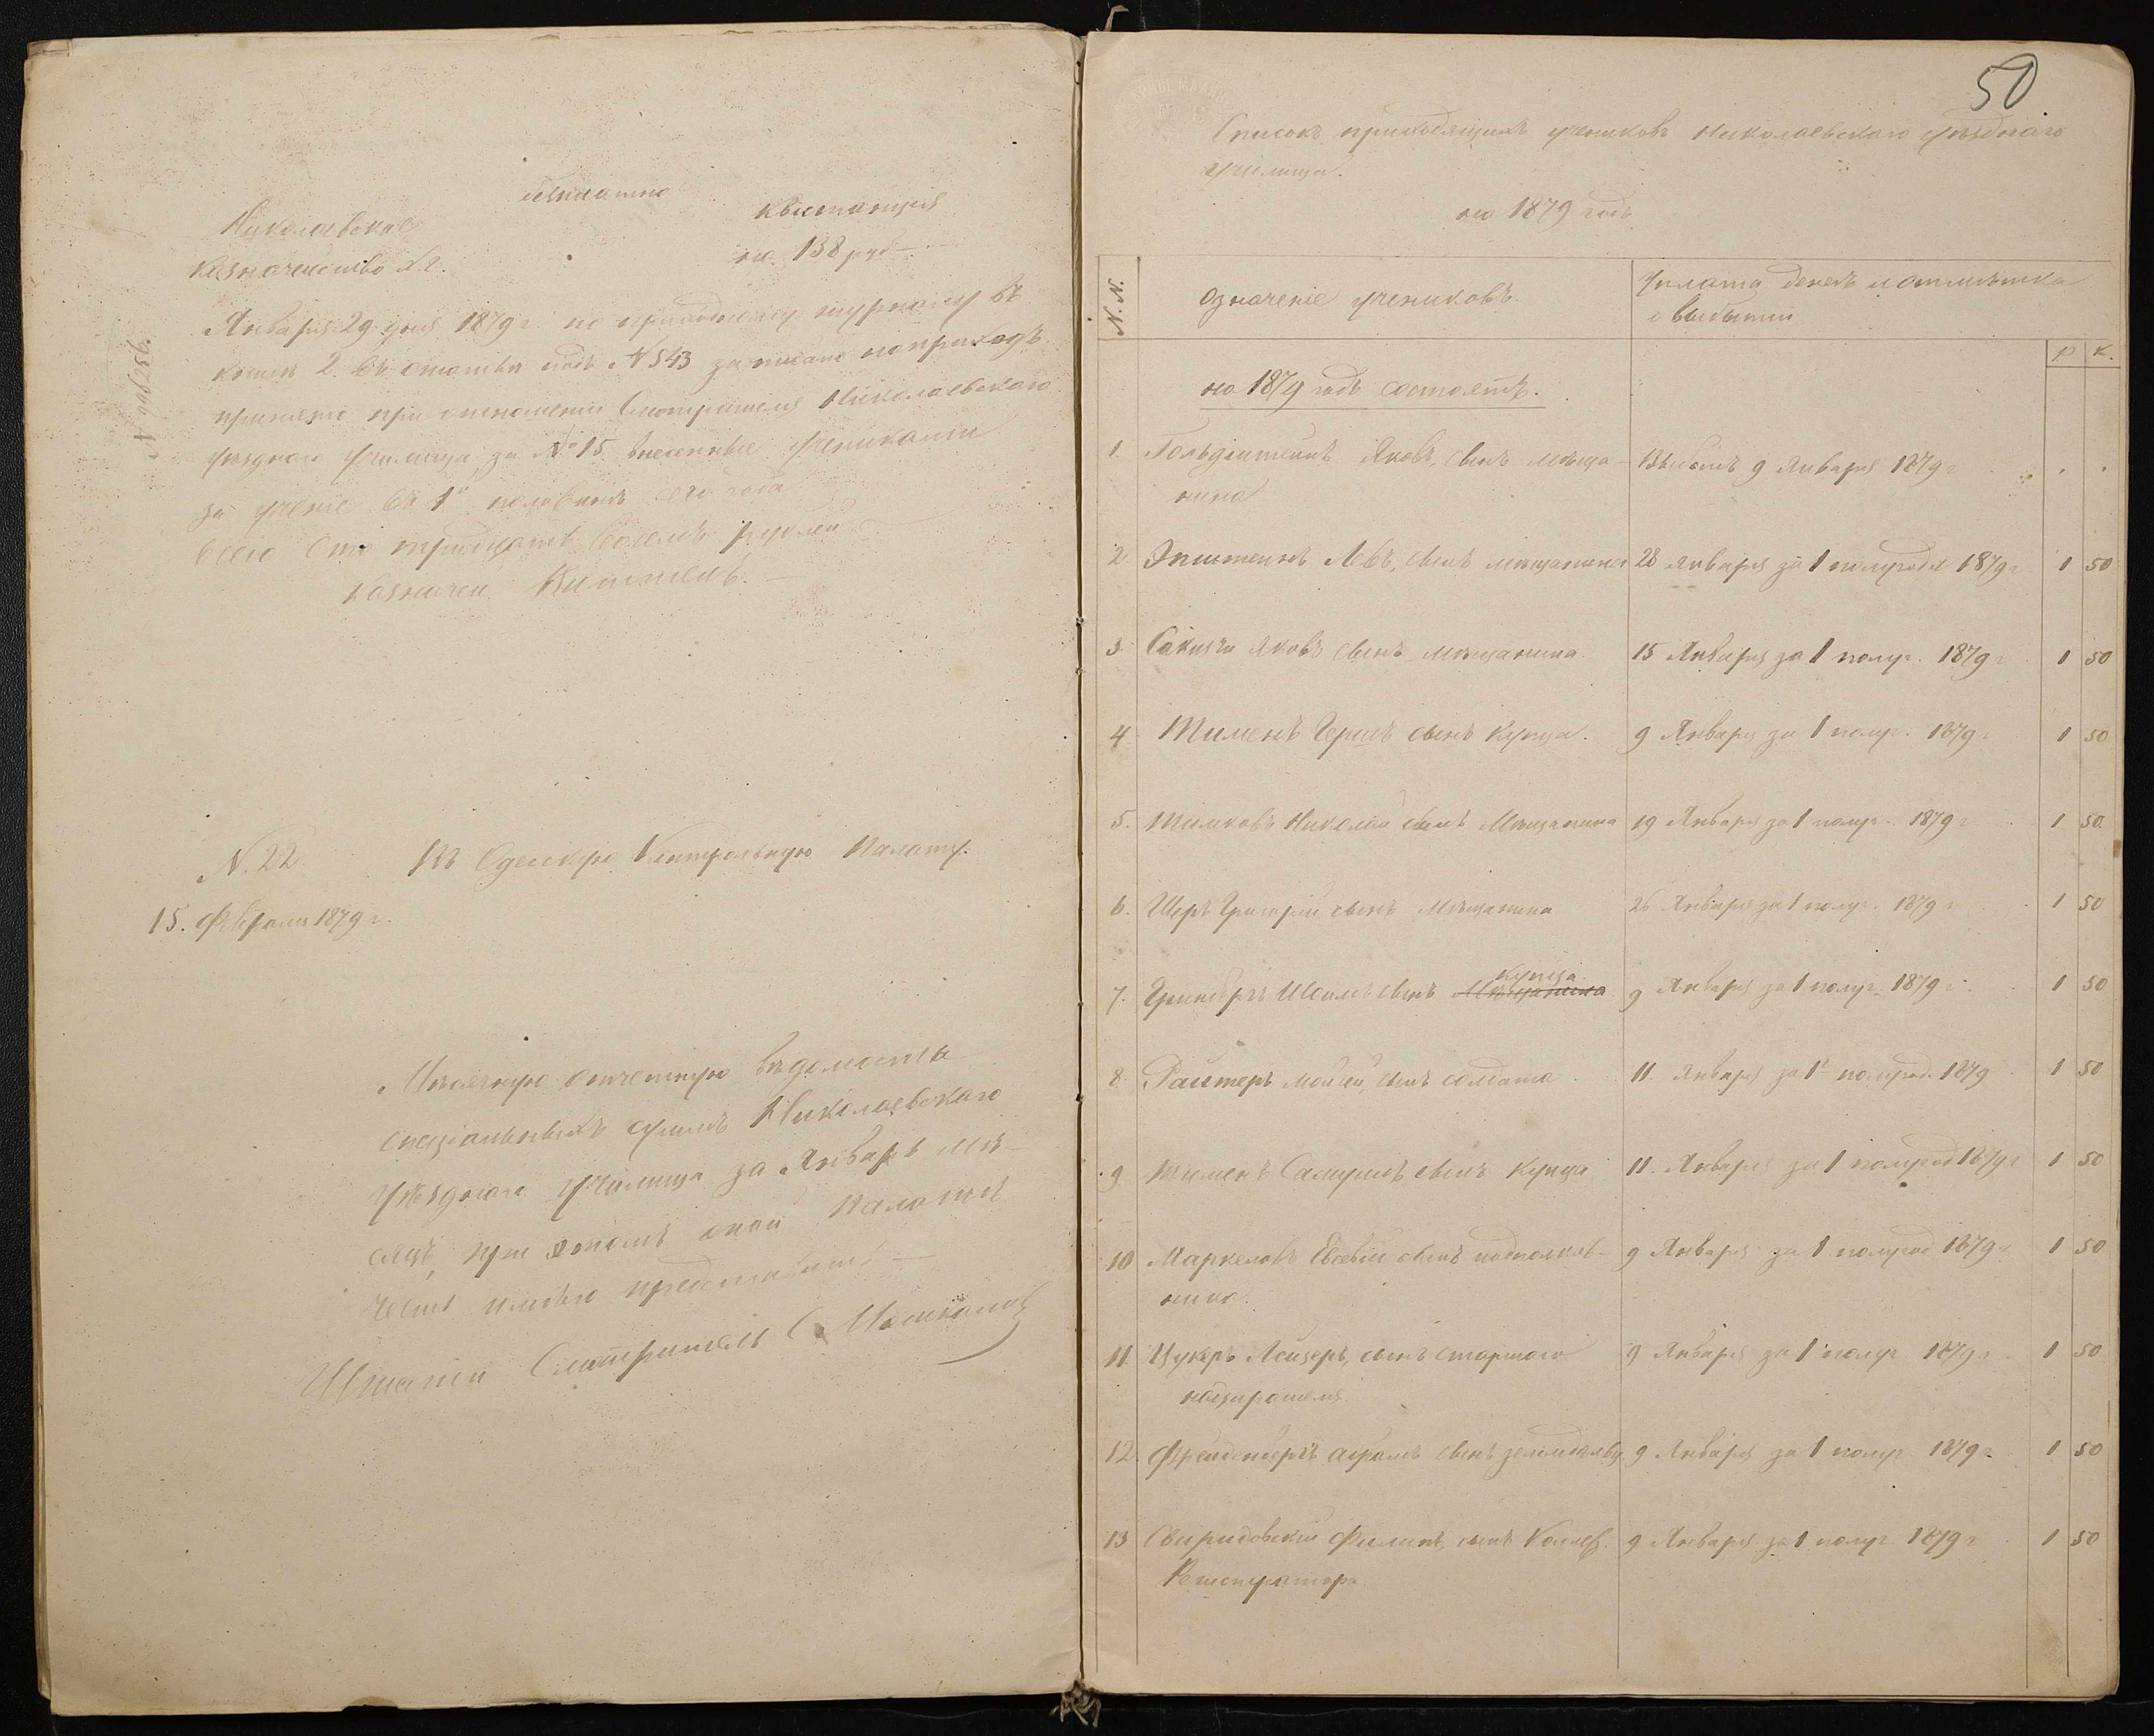 безплатно
Николаевское
Казначейство
Квитанція
на 138 руб
№ 996256.
Января 29 дня 1879 г. по приходному журналу въ
книгѣ 2 въ статьи подъ № 543 записано по приходъ
принято при отношеніи Смотрителя Николаевскаго
уѣзднаго Училища за № 15 внесенные учениками
за ученіе въ 1й половинѣ сего года
всего Сто тридцать восемь рублей
Казначей
N. 22
Въ Одесскую Контрольную Палату.
15. Февраля 1879 г.
Мѣсячную отчетную вѣдомость
спеціальныхъ суммъ Николаевскаго
Уѣзднаго училища за Январь мѣ-
сяцъ, при этомъ оной Палатѣ
честь имѣю представить —
Штатный Смотритель
50
Списокъ приходящихъ учениковъ Николаевскаго уѣзднаго
училища.
на 1879 годъ
N. N.
Означеніе учениковъ.
Уплата денегъ и отмѣтка
о выбытіи
р К.
на 1879 годъ состоятъ.
1. Гольдштейнъ Яковъ, сынъ мѣща-
нина
Выбылъ 9 Января 1879 г
2. Эпштейнъ Левъ, сынъ мѣщанина 28 января за 1 полугодіе 1879 г 1 50
3. Яковъ сынъ мѣщанина 15 Января за 1 полуг. 1879 г 1 50
4 Тименъ Гершъ сынъ Купца. 9 Января за 1 полуг. 1879 г 1 50
5. Николай сынъ Мѣщанина 19 Января за 1 полуг. 1879 г 1 50
6. Шеръ Григорій сынъ Мѣщанина 26 Января за 1 полуг. 1879 г 1 50
Купца
7. Гринбергъ сынъ Мѣщанина 9 Января за 1 полуг. 1879 г. 1 50
8. Райтеръ Мойсей, сынъ солдата 11 Января за 1е полугод. 1879 1 50
9. Тименъ Самуилъ сынъ Купца 11. Января за 1 полугод 1879 г 1 50
10 Маркеловъ Евсевій сынъ подполков-
ника.
9 Января за 1 полугод 1879 г 1 50
11. Цукеръ Лейзеръ, сынъ старшаго
надзирателя
9 Января за 1 полуг 1879 г. 1 50
12. Фрейденбергъ сынъ земледѣльца 9 Января за 1 полуг 1879 г. 1 50
13 Свиридовскій Филипъ, сынъ Коллеж.
Регистратора
9 Января за 1 полуг 1879 г 1 50